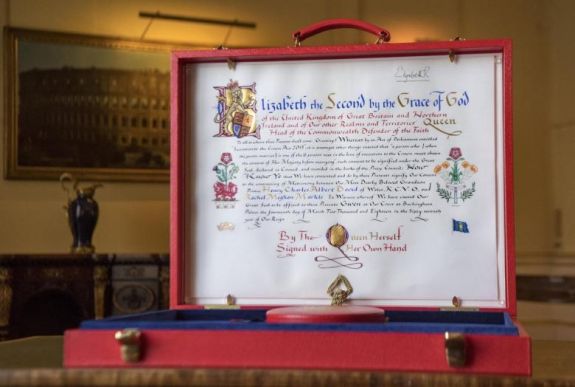 Elizabeth R
Elizabeth the Second by the Grace of God
of the United Kingdom of Great Britain and Northern
Ireland and of Our other Realms and Territories Queen
Head of the Commonwealth Defender of the Faith
To all to whom these Presents shall come Greeting! Whereas by an Act of Parliament entitled
Succession to the Crown Act 2013 it is amongst other things enacted that a person who when
the person marries is one of the six persons next in the line of succession to the Crown must obtain
the consent of Her Majesty before marrying such consent to be signified under the Great
Seal declared in Council and recorded in the books of the Privy Council Now
Know Ye that We have consented and do by these Presents signify Our Consent
to the contracting of Matrimony between Our Most Dearly Beloved Grandson
Prince Henry Charles Albert David of Wales, K.C.V.O. and
Rachel Meghan Markle In Witness whereof We have caused Our
Great Seal to be affixed to these Presents Given at Our Court at Buckingham
Palace the fourteenth day of March Two Thousand and Eighteen in the sixty seventh
year of Our Reign
By The Queen Herself
Signed with Her Own Hand